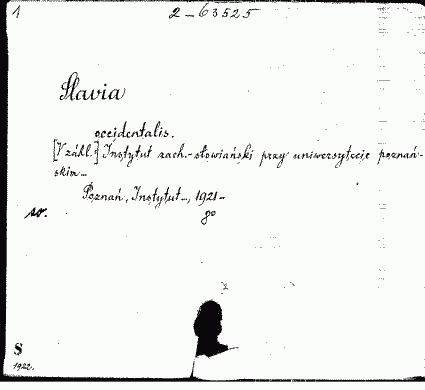 1
2-63525
Slavia
occidentalis.
[V zákl.] Instytut zach.-słowiański przy uniwersytecie poznań-
skim_
Poznań, Instytut_, 1921-
sv.
8°
S
1922.